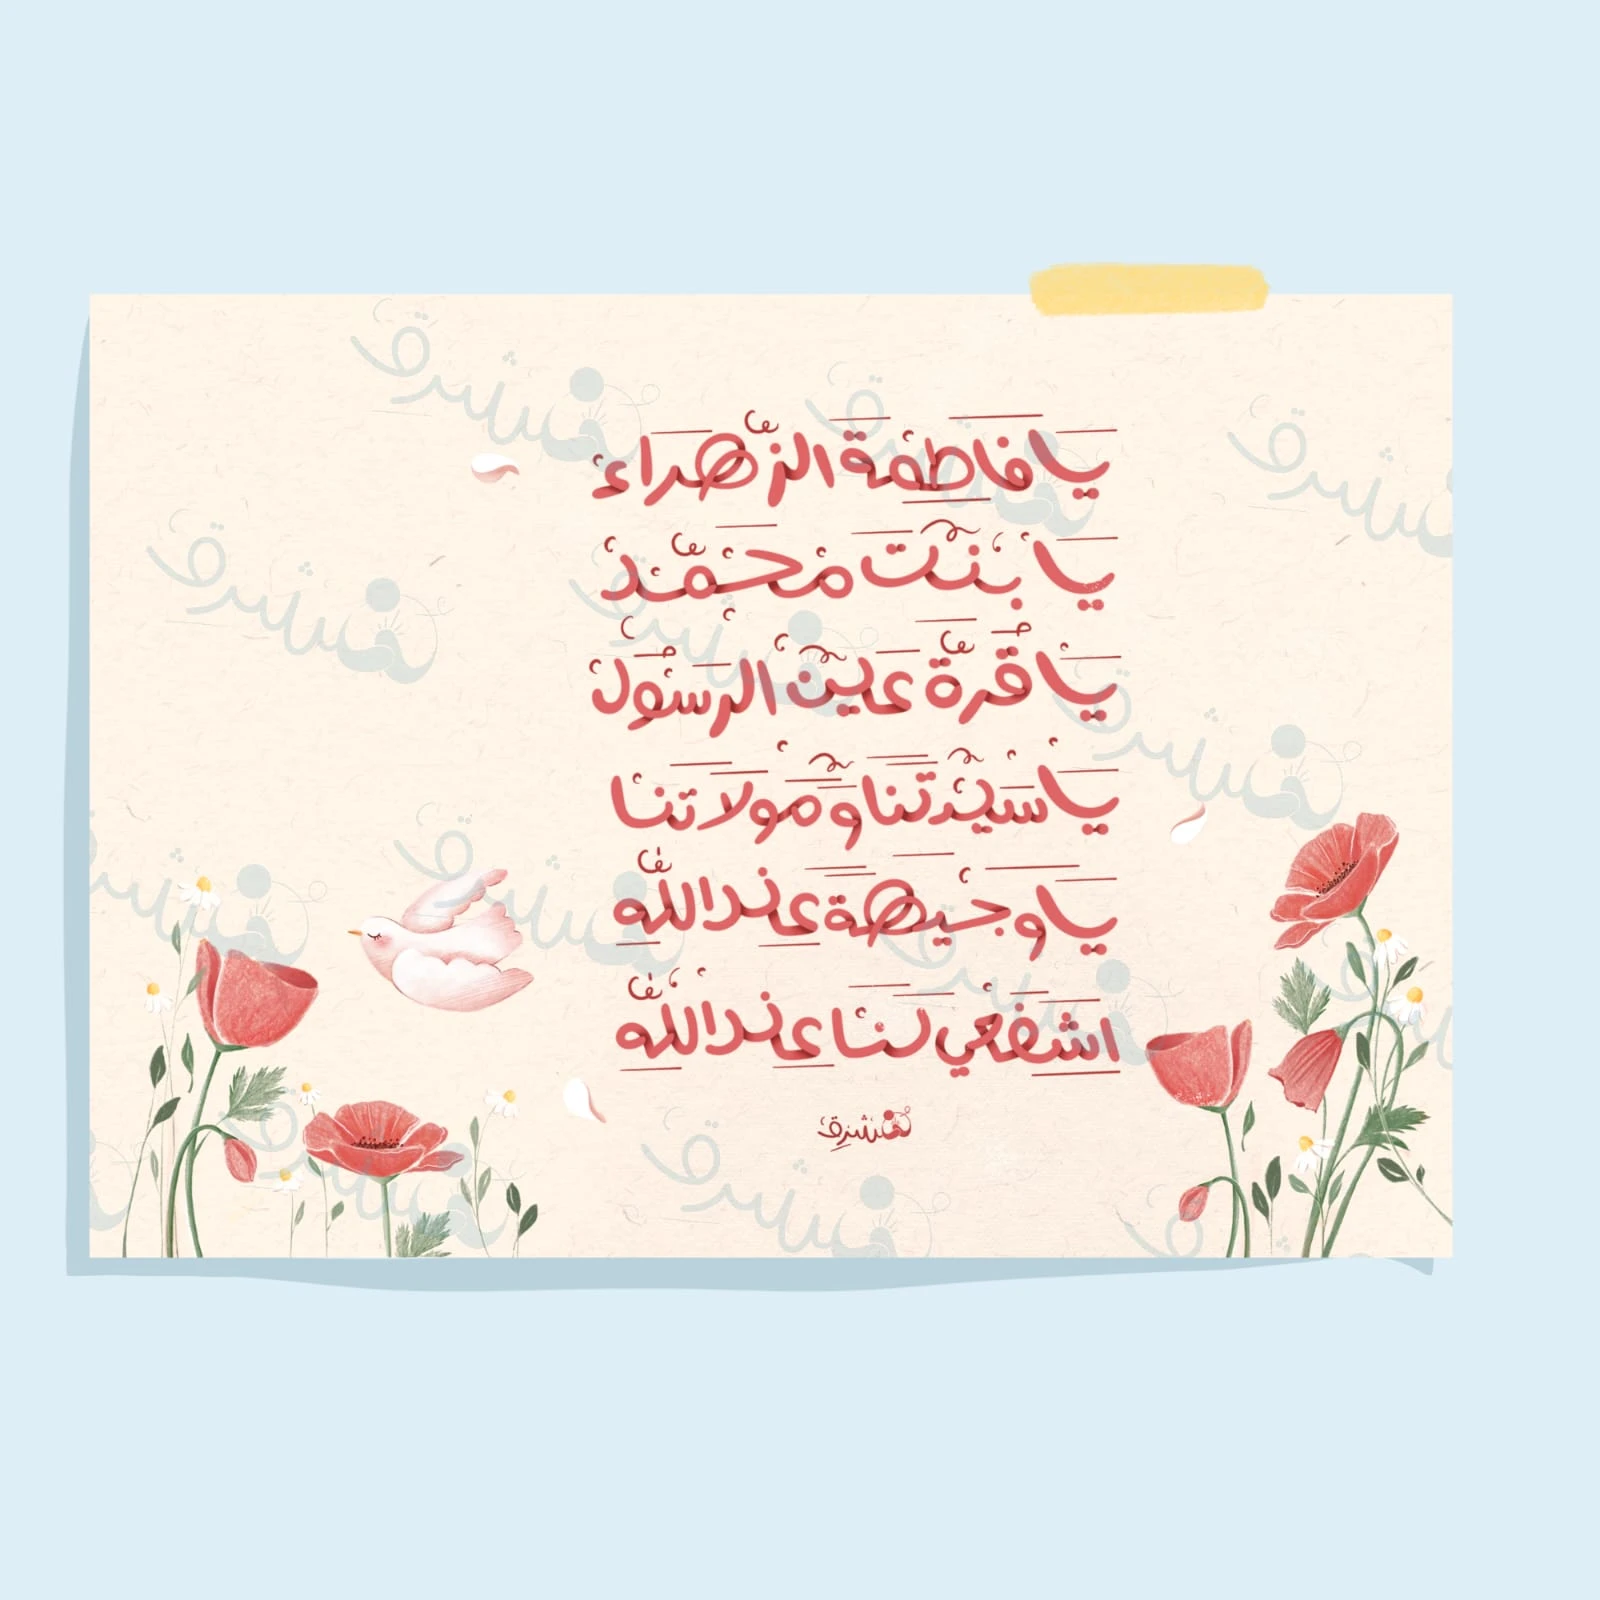 يا فاطمة الزهراء
يا بنت محمد
يا قرة عين الرسول
يا سيدتنا و مولاتنا
يا وجيهة عند الله
اشفعي لنا عند الله